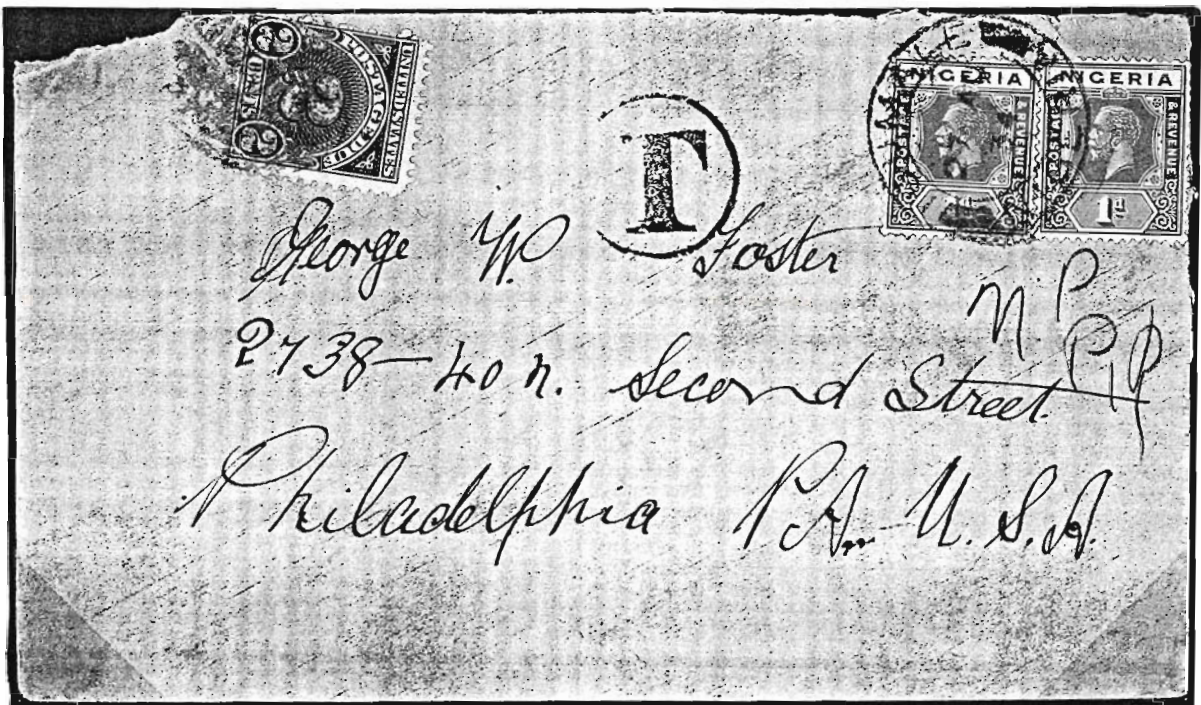 UNITED STATES
POSTAGE DUE
2 CENTS 2
T
NIGERIA
POSTAGE & REVENUE
NIGERIA
POSTAGE & REVENUE
1d
George W. Foster
N. P.
2738–40 N. Second Street.
Philadelphia PA. U.S.A.